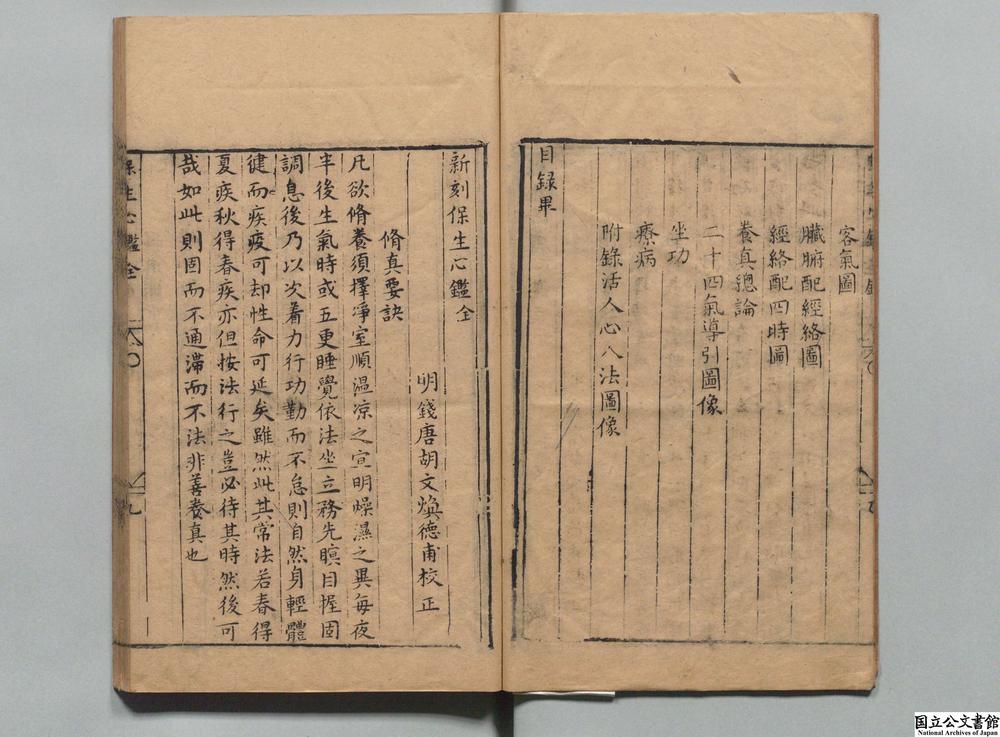 客氣圖
臟腑配經絡圖
經絡配四時圖
養真總論
二十四氣導引圖像
坐功
療病
附錄活人心八法圖像
目錄畢
新刻保生心鑑全
明錢唐胡文煥德甫校正
脩真要訣
凡欲脩養須擇凈室順溫凉之宣明燥濕之異每夜
半後生氣時或五更睡覺依法坐立務先瞑目握固
調息後乃以次着力行功勤而不怠則自然身輕體
健而疾疫可却性命可延矣雖然此其常法若春得
夏疾秋得春疾亦但按法行之豈必待其時然後可
哉如此則固而不通滯而不法非善養真也
保生心鑑全
九
国立公文書館
National Archives of Japan